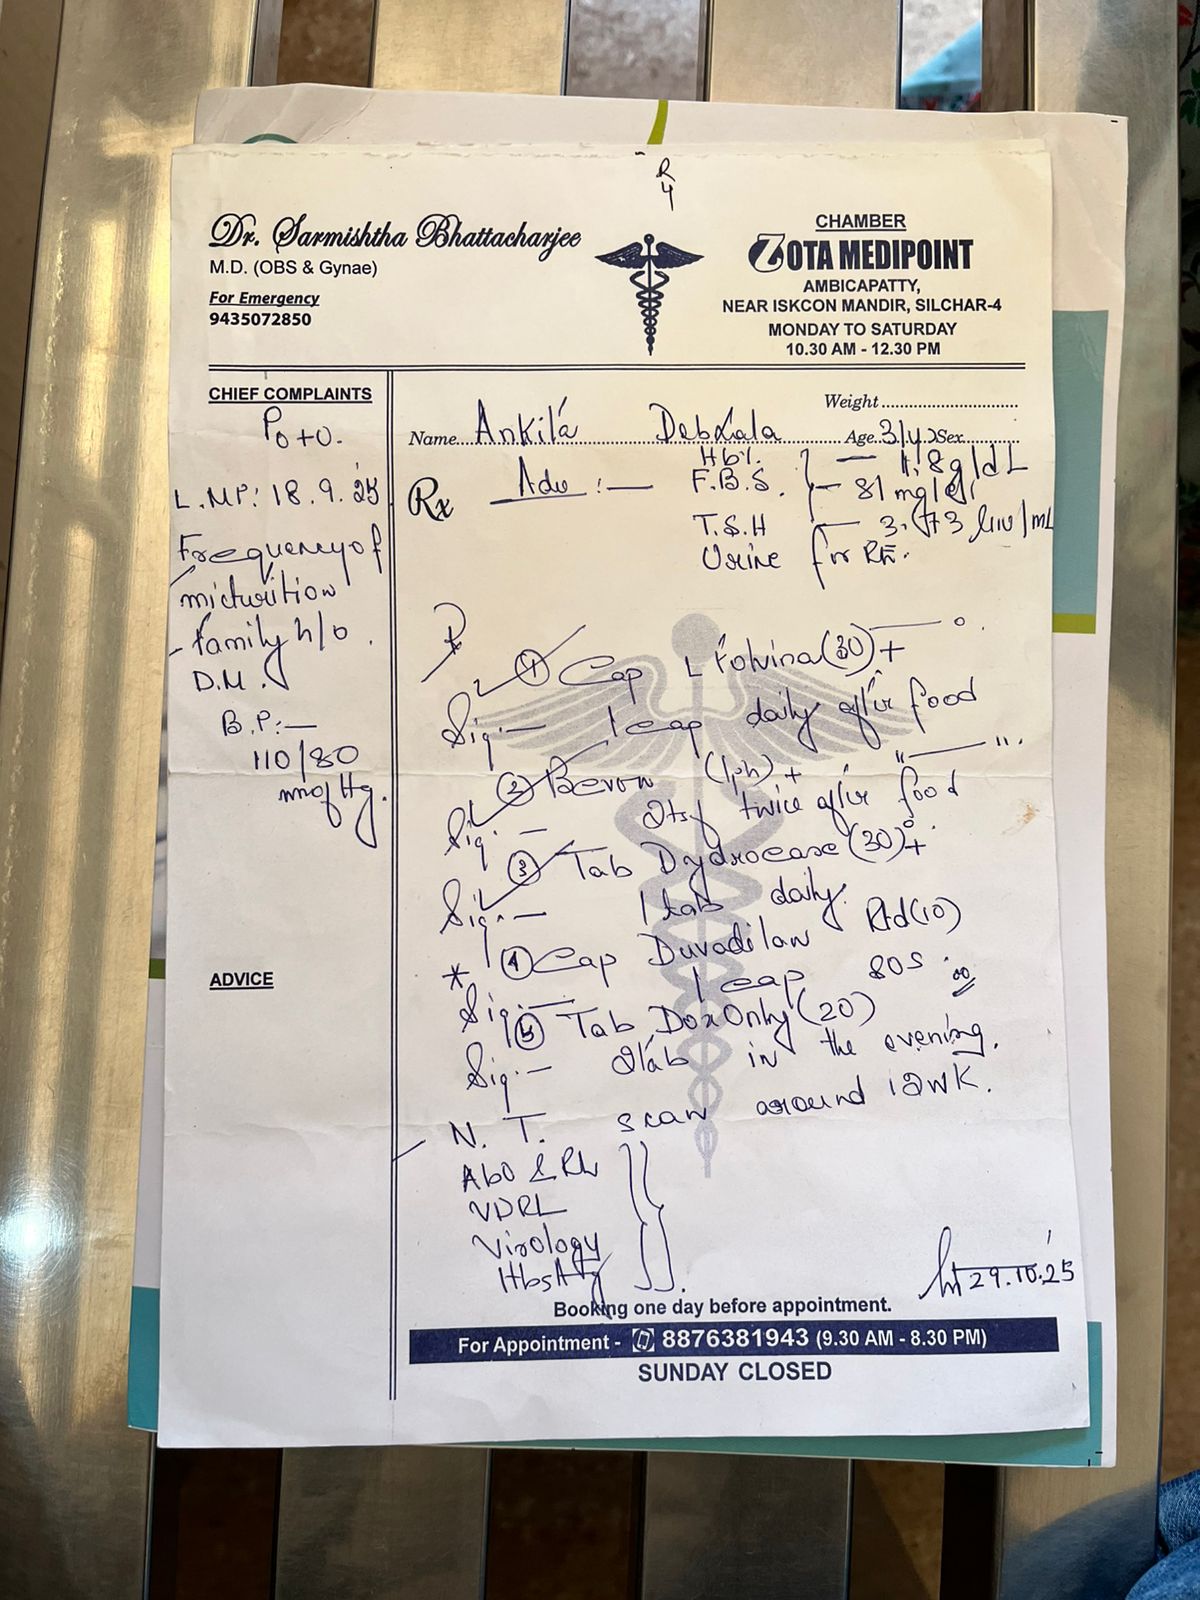 R
4
Dr. Sarmishtha Bhattacharjee
M.D. (OBS & Gynae)
For Emergency
9435072850
CHAMBER
ZOTA MEDIPOINT
AMBICAPATTY,
NEAR ISKCON MANDIR, SILCHAR-4
MONDAY TO SATURDAY
10.30 AM - 12.30 PM
CHIEF COMPLAINTS
P0+0.
L.M.P: 18.9.25
Frequency of
micturition
- family h/o
D.M.
B.P:-
110/80
mmofHg.
ADVICE
Weight
Name Ankita Deb Age 31 Sex
Rx Adv :—
Hb%
F.B.S. — 81 mg/dl
T.S.H
Urine for RE.
① Cap (30)+
Sig:— 1 cap daily after food
② (1ph) +
Sig:— 2tsf twice after food
③ Tab (30)+
Sig:— 1 tab daily.
* ④ Cap Duvadilan Rtd(10)
Sig:— 1 cap SOS.
⑤ Tab DoxOnly(20)
Sig:— 2tab in the evening.
N. T. scan around 12wk.
AbO & Rh
VDRL
Virology
HbsAg
29.10.25
Booking one day before appointment.
For Appointment - 8876381943 (9.30 AM - 8.30 PM)
SUNDAY CLOSED